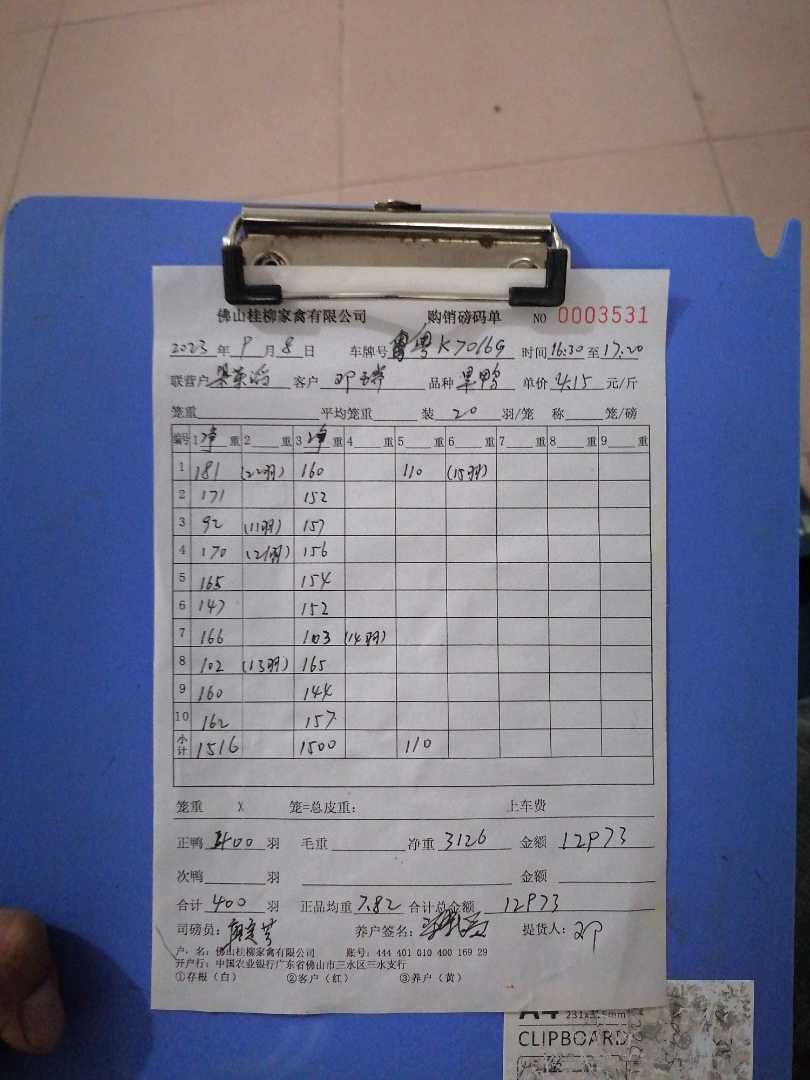 佛山桂柳家禽有限公司 购销磅码单 NO 0003531
2023年 9月 8日 车牌号 粤K70169 时间 16:30 至 17:20
联营户 客户 邓 品种 单价 4.15 元/斤
笼重 平均笼重 装 20 羽/笼 称 笼/磅
编号 1 净 重 2 重 3 净 重 4 重 5 重 6 重 7 重 8 重 9 重
1 181 (22羽) 160 110 (15羽)
2 171 152
3 92 (11羽) 157
4 170 (21羽) 156
5 165 154
6 147 152
7 166 103 (14羽)
8 102 (13羽) 165
9 160 144
10 162 157
小计 1516 1500 110
笼重 X 笼=总皮重: 上车费
正鸭 400 羽 毛重 净重 3126 金额 12973
次鸭 羽 金额
合计 400 羽 正品均重 7.82 合计总金额 12973
司磅员: 养户签名: 提货人: 邓
户 名: 佛山桂柳家禽有限公司 账号: 444 401 010 400 169 29
开户行: 中国农业银行广东省佛山市三水区三水支行
①存根(白) ②客户(红) ③养户(黄)
A4 231x315mm
CLIPBOARD